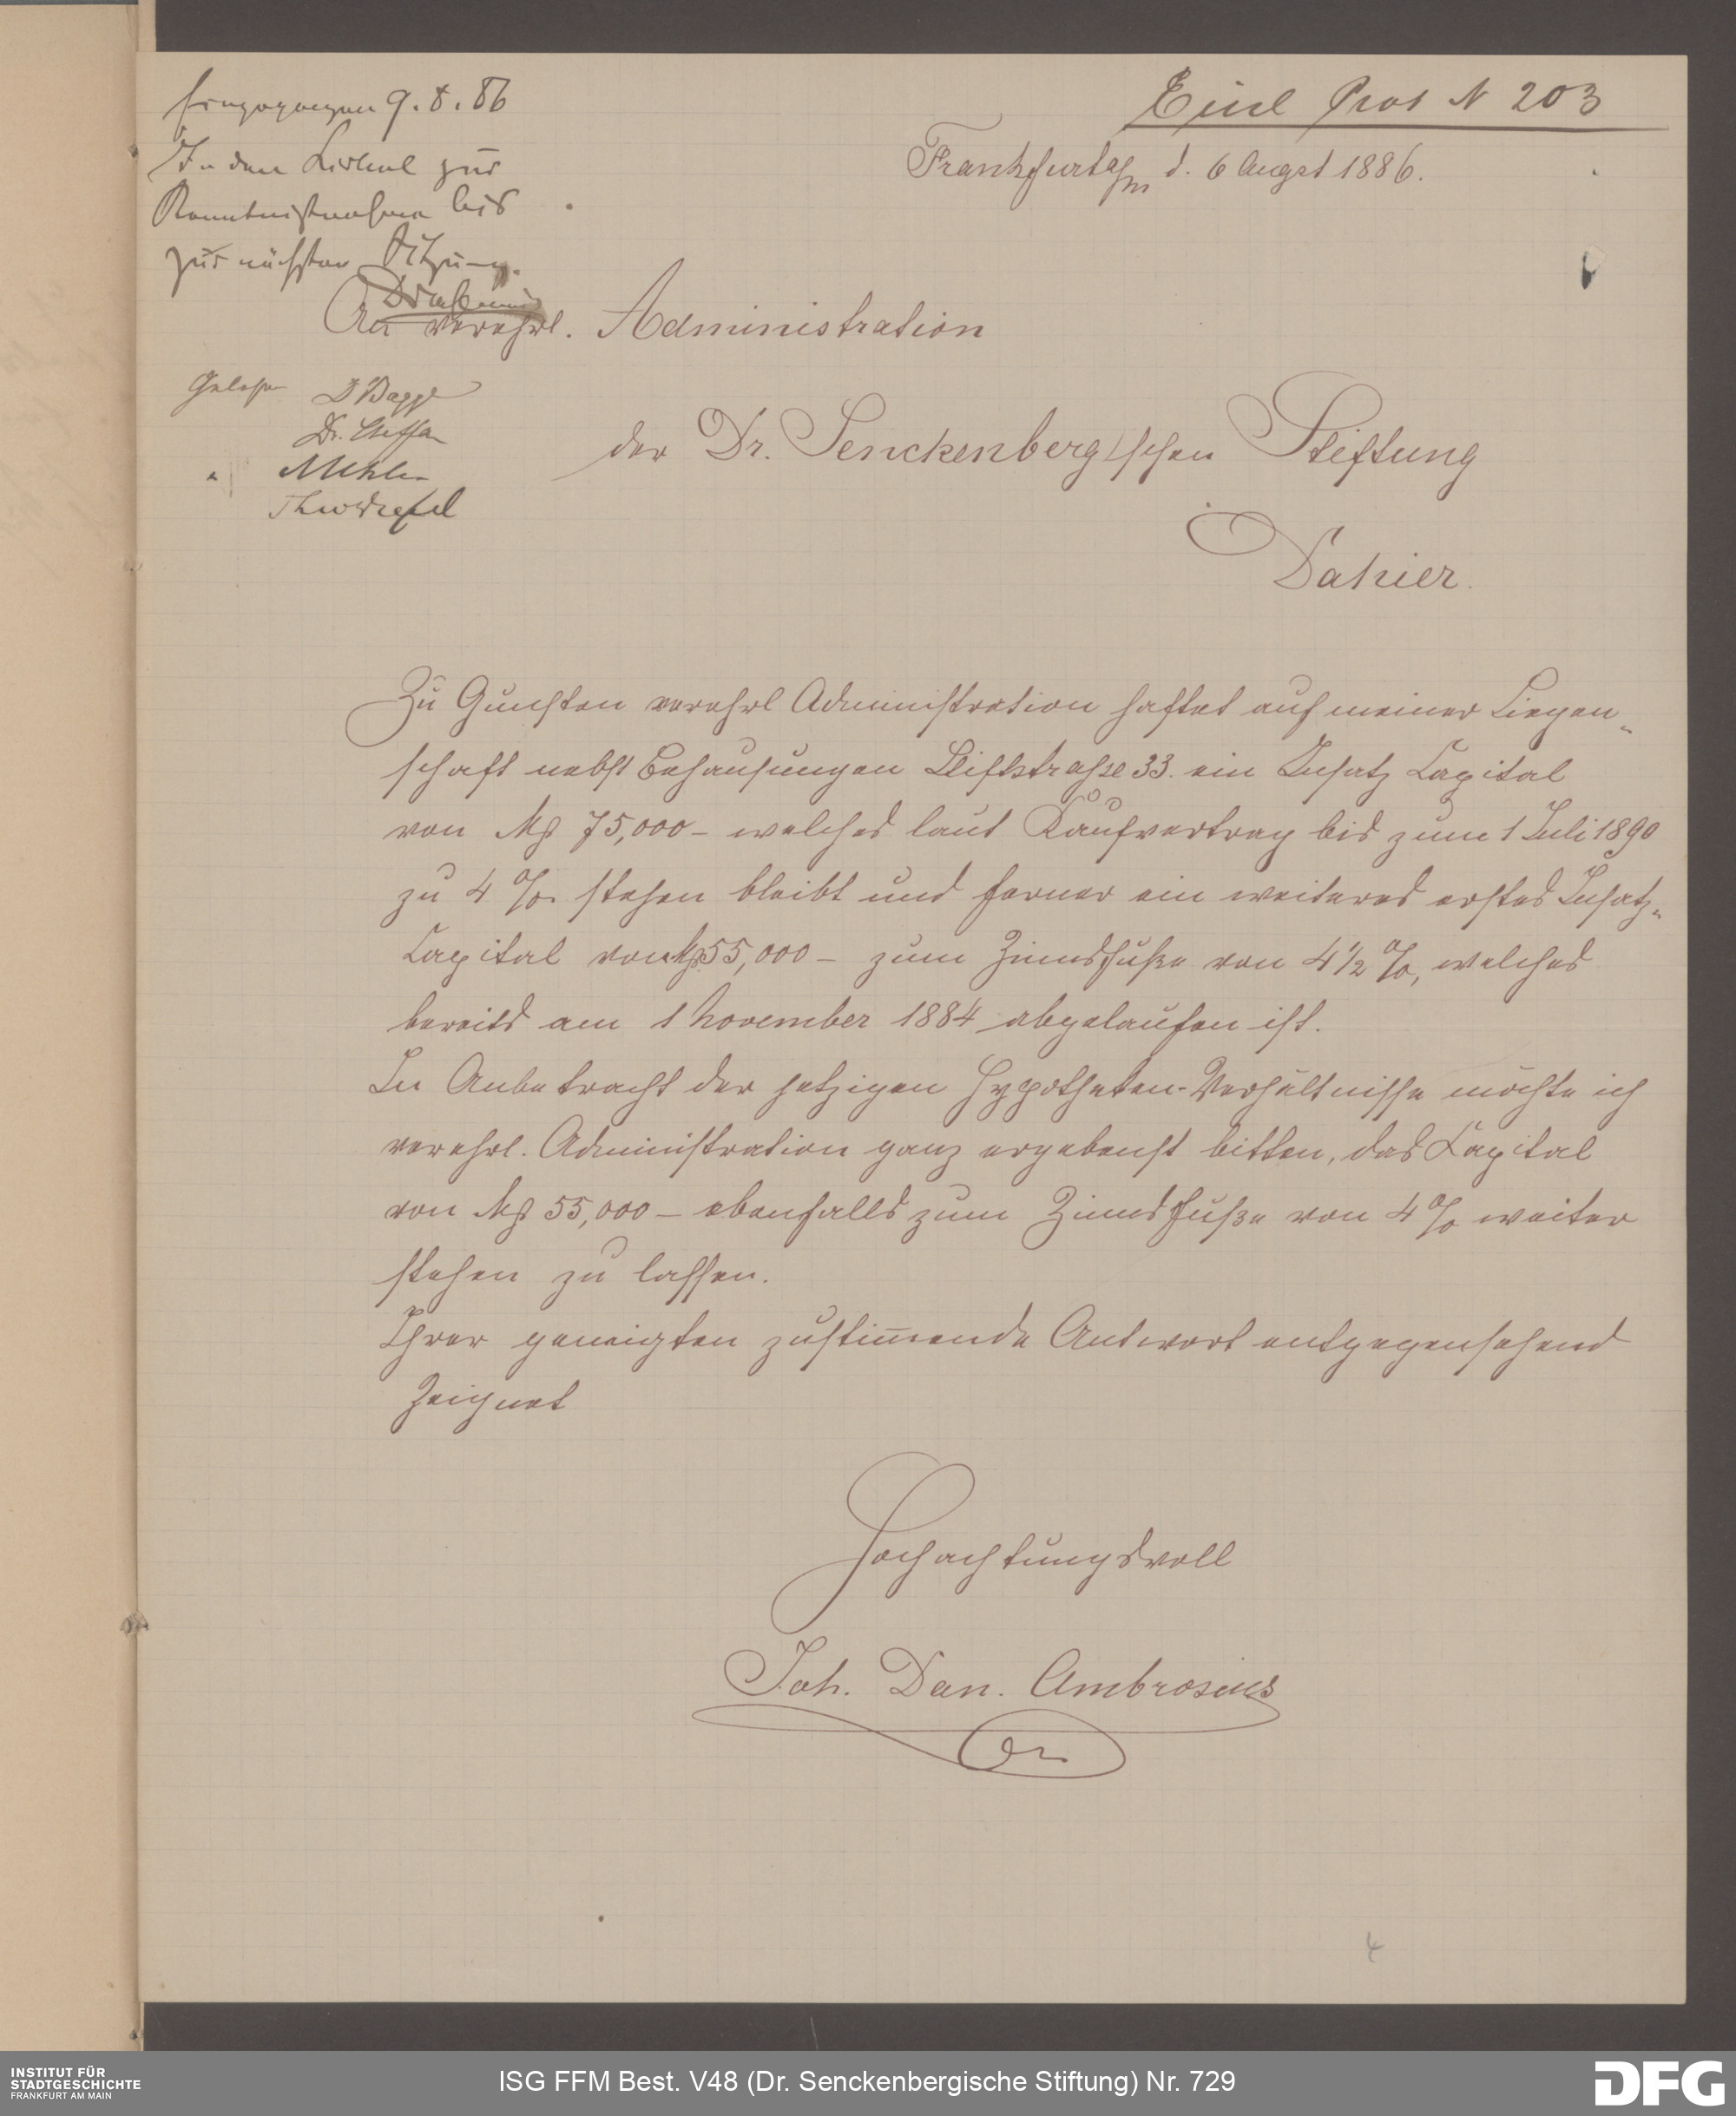 Eingegangen 9.8.86
In den Cirkul zur
Kenntnißnahme bis
zur nächsten Sitzung.
Einl Prot N 203
Frankfurt a/m d. 6 Augst 1886.
An verehrl. Administration
Gelesen
der Dr. Senckenberg'schen Stiftung
Dahier.
Zu Gunsten verehrl Administration haftet auf meiner Liegen„
schaft nebst Behausungen Stiftstraße 33. ein Insatz Capital
von Mk 75,000– welches laut Kaufvertrag bis zum 1 Juli 1890
zu 4 % stehen bleibt und ferner ein weiteres erstes Insatz„
Capital von Mk 55,000– zum Zinsfuße von 4½ %, welches
bereits am 1 November 1884 abgelaufen ist.
In Anbetracht der jetzigen Hypotheken-Verhältnisse möchte ich
verehrl. Administration ganz ergebenst bitten, das Capital
von Mk 55,000– ebenfalls zum Zinsfuße von 4 % weiter
stehen zu lassen.
Ihrer geneigten zustim̄ende Antwort entgegensehend
Zeichnet
Hochachtungsvoll
Joh. Dan. Ambrosius
4
INSTITUT FÜR
STADTGESCHICHTE
FRANKFURT AM MAIN
ISG FFM Best. V48 (Dr. Senckenbergische Stiftung) Nr. 729
DFG